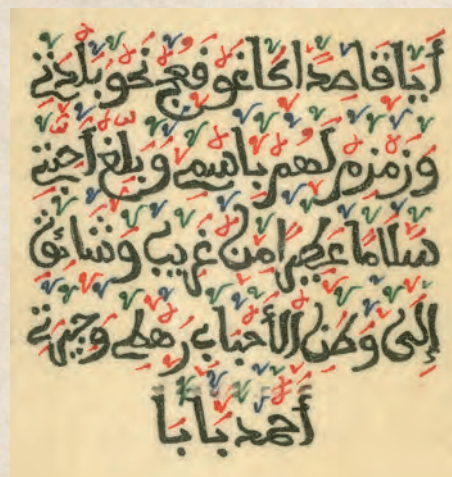 أيا قاصدا كاغو فعج نحو بلدتي
وزمزم لهم باسمي وبلغ أحبتي
سلاما عطيرا من غريب وشائق
إلى وطن الأحباب رهطي وجيرتي
أحمد بابا